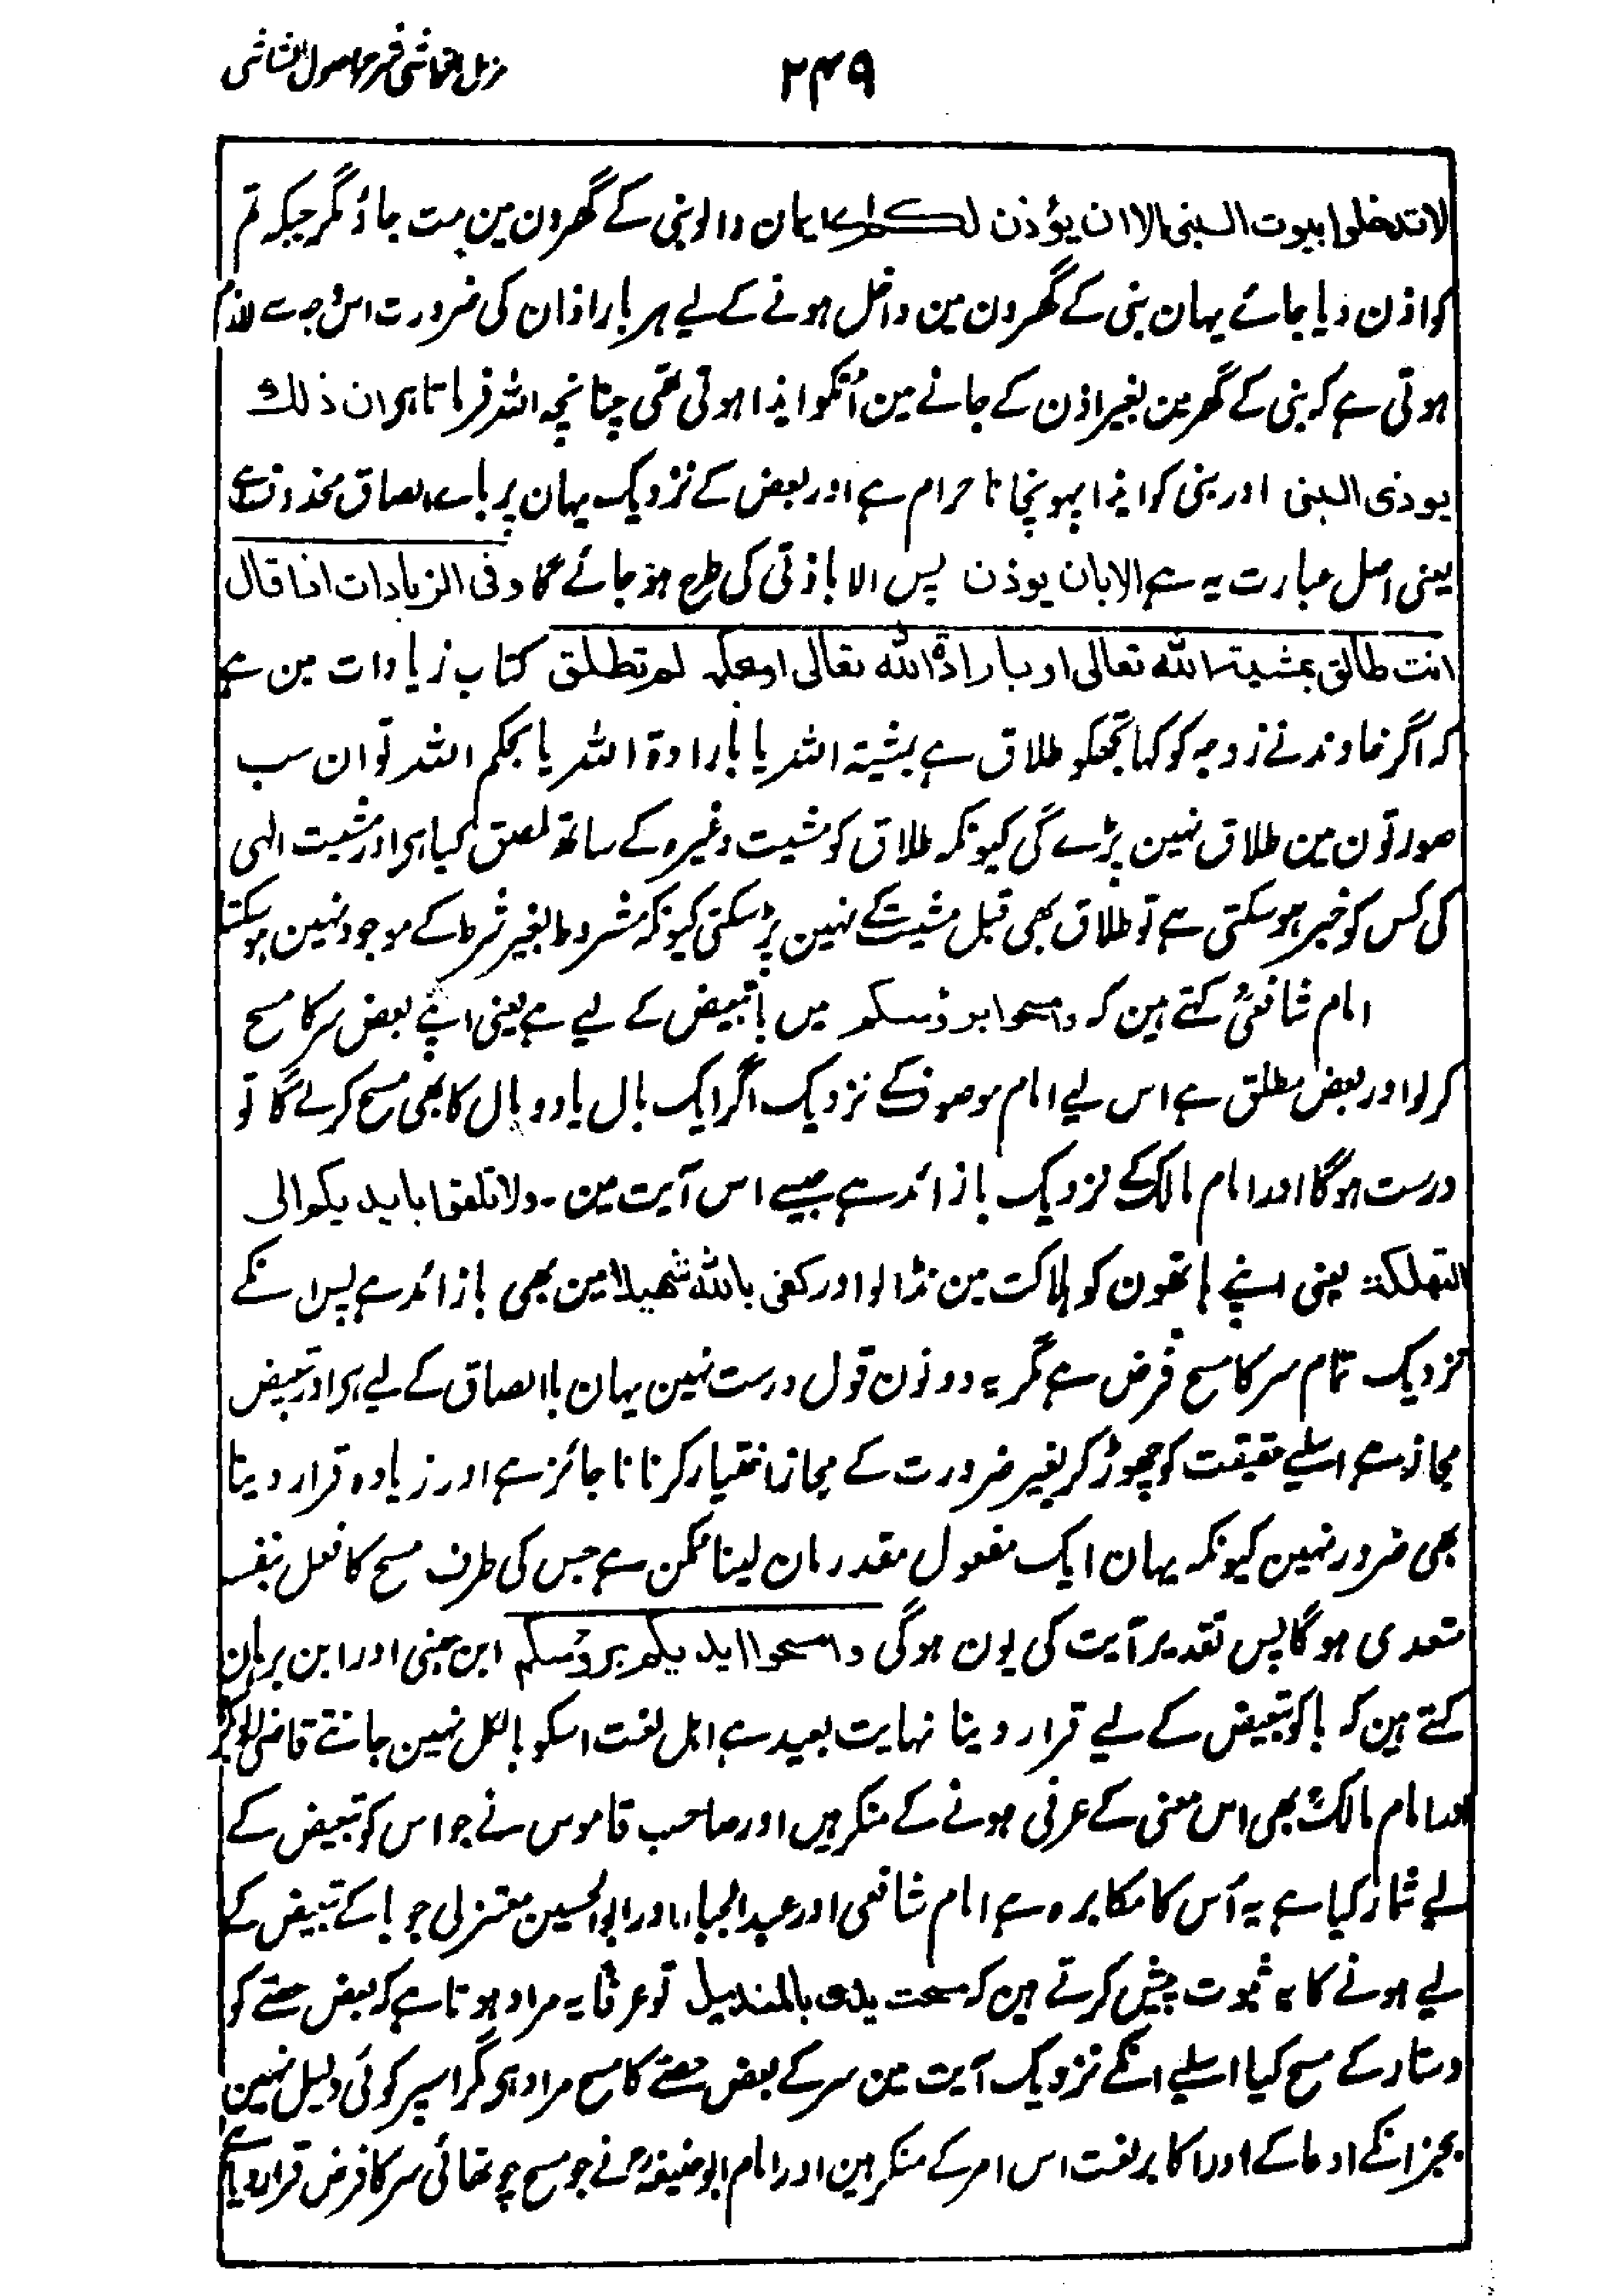 ۲۴۹
مزیل الغواشی شرح اصول الشاشی
لا تدخلوا بیوت النبی الا ان یؤذن لکم اے ایمان والو نبی کے گھرون مین مت جاؤ مگر جبکہ تم
کو اذن دیا جائے یہان نبی کے گھرون مین داخل ہونے کے لیے ہر بار اذان کی ضرورت اس وجہ سے لازم
ہوتی ہے کہ نبی کے گھر مین بغیر اذن کے جانے مین اُنکو ایذا ہوتی تھی چنانچہ اللہ فرماتا ہی ان ذلک
یوذی النبی اور نبی کو ایذا پہونچانا حرام ہے اور بعض کے نزدیک یہان پر باے الصاق محذوف ہے
یعنی اصل عبارت یہ ہے الا بان یوذن پس الا باذنی کی طرح ہو جائے گا وفی الزیادات اذا قال
انت طالق بمشیۃ اللہ تعالی او بارادۃ اللہ تعالی او بحکمہ لم تطلق کتاب زیادات مین ہے
کہ اگر خاوند نے زوجہ کو کہا تجھکو طلاق ہے بمشیۃ اللہ یا بارادۃ اللہ یا بحکم اللہ تو ان سب
صورتون مین طلاق نہین پڑے گی کیونکہ طلاق کو مشیت وغیرہ کے ساتھ ملصق کیا ہی اور مشیت الہی
کی کس کو خبر ہو سکتی ہے تو طلاق بھی قبل مشیت کے نہین پڑ سکتی کیونکہ مشروط بغیر شرط کے موجود نہین ہو سکتا
امام شافعیؒ کہتے ہین کہ وامسحوا بروٴسکم میں با تبعیض کے لیے ہے یعنی اپنے بعض سر کا مسح
کر لو اور بعض مطلق ہے اس لیے امام موصوف کے نزدیک اگر ایک بال یا دو بال کا بھی مسح کر لے گا تو
درست ہوگا اور امام مالک کے نزدیک با زائد ہے جیسے اس آیت مین ۔ ولا تلقوا بایدیکم الی
التهلکۃ یعنی اپنے ہاتھون کو ہلاکت مین نڈالو اور کفی باللہ شهیدا مین بھی با زائد ہے پس انکے
نزدیک تمام سر کا مسح فرض ہے مگر یہ دونون قول درست نہین یہان با الصاق کے لیے ہی اور تبعیض
مجاز ہے اسلیے حقیقت کو چھوڑ کر بغیر ضرورت کے مجاز اختیار کرنا نا جائز ہے اور زیادہ قرار دینا
بھی ضرور نہین کیونکہ یہان ایک مفعول مقدر مان لینا ممکن ہے جس کی طرف مسح کا فعل بنفسہ
متعدی ہوگا پس تقدیر آیت کی یون ہوگی وامسحوا ایدیکم بروٴسکم ابن جنی اور ابن برہان
کہتے ہین کہ با کو تبعیض کے لیے قرار دینا نہایت بعید ہے اہل لغت اسکو بالکل نہین جانتے قاضی ابوبکر
اور امام مالکؒ بھی اس معنی کے عرفی ہونے کے منکر ہیں اور صاحب قاموس نے جو اس کو تبعیض کے
لیے شمار کیا ہے یہ اُس کا مکابرہ ہے امام شافعی اور عبد الجبار اور ابو الحسین معتزلی جو با کے تبعیض کے
لیے ہونے کا یہ ثبوت پیش کرتے ہین کہ مسحت یدی بالمندیل تو عرفًا یہ مراد ہوتا ہے کہ بعض حصے کو
دستار کے مسح کیا اسلیے انکے نزدیک آیت مین سر کے بعض حصے کا مسح مراد ہی مگر اسپر کوئی دلیل نہین
بجز انکے ادعا کے اور اکابر لغت اس امر کے منکر ہین اور امام ابو حنیفہؒ نے جو مسح چوتھائی سر کا فرض قرار دیا ہے